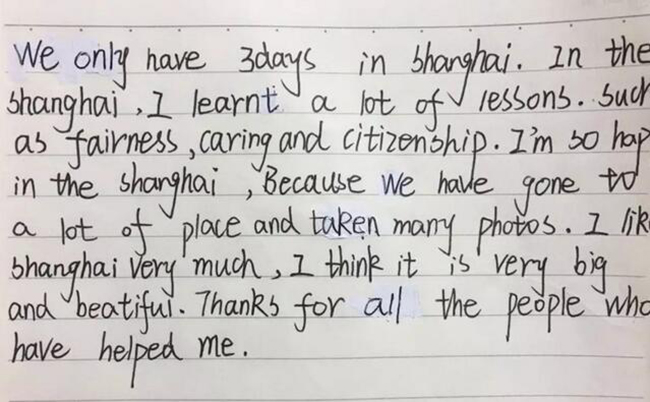 We only have 3days in shanghai. In the
shanghai, I learnt a lot of lessons. Such
as fairness, caring and citizenship. I'm so hap
in the shanghai, Because we have gone to
a lot of place and taken many photos. I lik
shanghai very much, I think it is very big
and beatiful. Thanks for all the people who
have helped me.